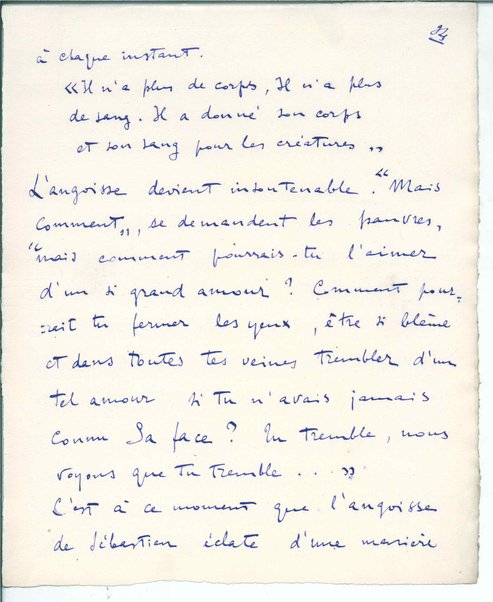 24
à chaque instant.
«Il n'a plus de corps, Il n'a plus
de sang. Il a donné son corps
et son sang pour les créatures „
L'angoisse devient insoutenable. “Mais
comment„, se demandent les pauvres,
“mais comment pourrais-tu l'aimer
d'un si grand amour ? Comment pour-
-rait tu fermer les yeux, être si blême
et dans toutes tes veines trembler d'un
tel amour si tu n'avais jamais
connu Sa face ? Tu tremble, nous
voyons que tu tremble . . . »
C'est à ce moment que l'angoisse
de Sébastien éclate d'une manière